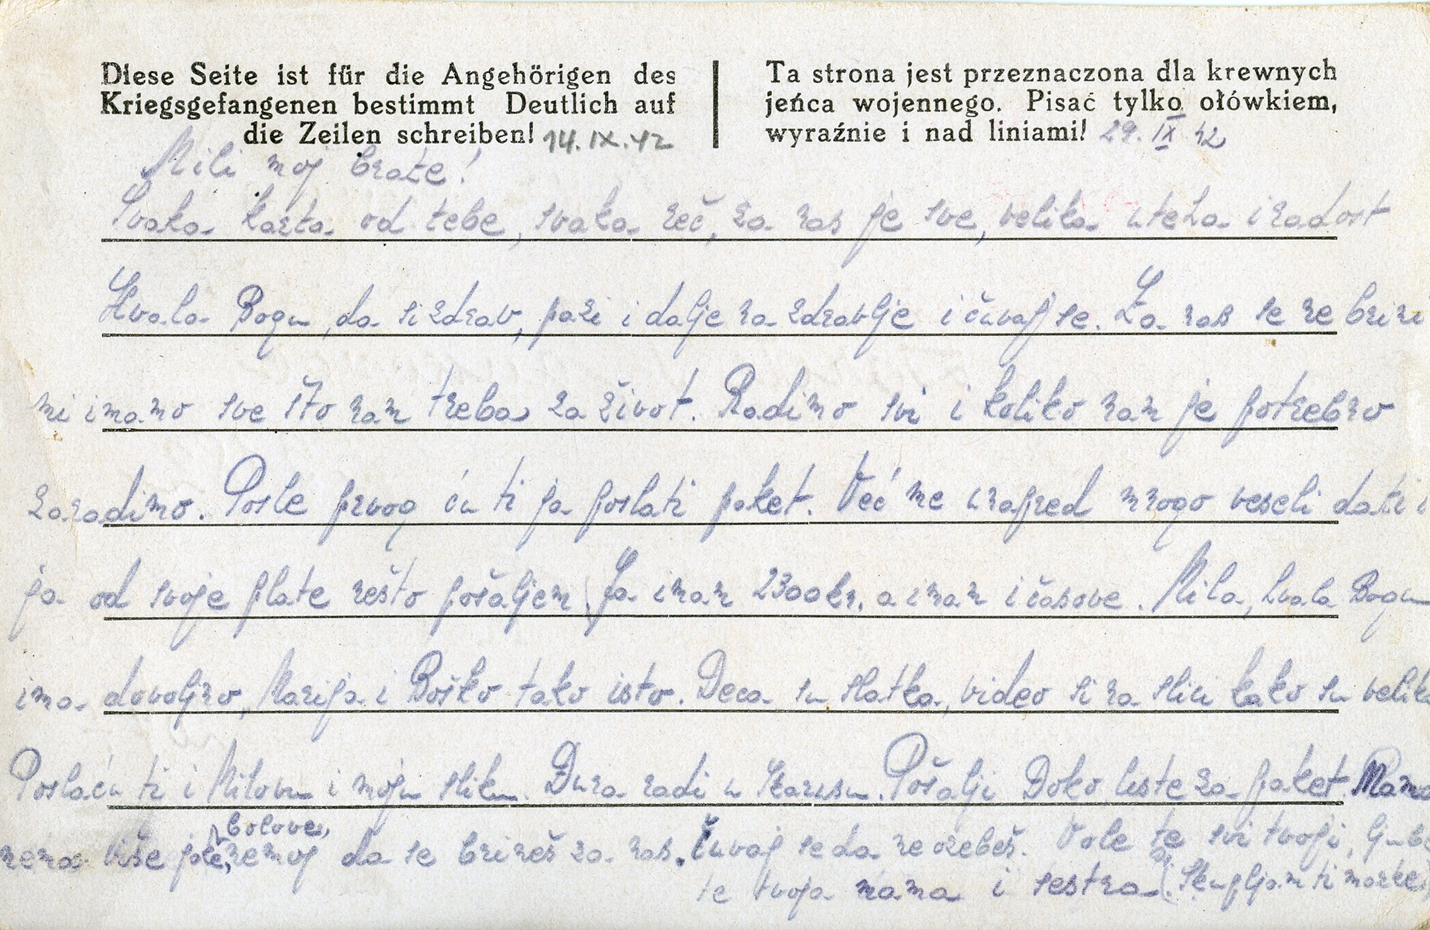 Diese Seite ist für die Angehörigen des
Kriegsgefangenen bestimmt Deutlich auf
die Zeilen schreiben! 14.IX.42
Ta strona jest przeznaczona dla krewnych
jeńca wojennego. Pisać tylko ołówkiem,
wyraźnie i nad liniami! 29.IX 42
Mili moj brate!
Svaka karta od tebe, svaka reč, za nas je sve, velika uteha i radost
Hvala Bogu, da si zdrav, pazi i dalje na zdravlje i čuvaj se. Za nas se ne brini
mi imamo sve što nam treba za život. Radimo svi i koliko nam je potrebno
zaradimo. Posle prvog ću ti ja poslati paket. Već me unapred mnogo veseli da ti i
ja od svoje plate nešto pošaljem Ja imam 2300 kn, a imam i časove. Mila, hvala Bogu
ima dovoljno, Marija i Boško tako isto. Deca su slatka, video si na slici kako su velika
Poslaću ti i Milovu i moju sliku. Đura radi u Pošalji Doko liste za paket. Mama
nema više bolove, nemoj da se brineš za nas. Čuvaj se da ne ozebeš. Vole te svi tvoji, ljube
te tvoja mama i sestra Skupljam ti marke